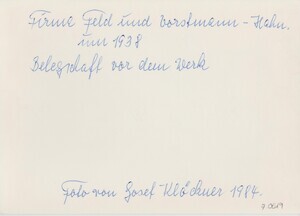 Firma Feld und Vorstmann - Hahn.
um 1938
Belegschaft vor dem Werk
Foto von Josef Klöckner 1984.